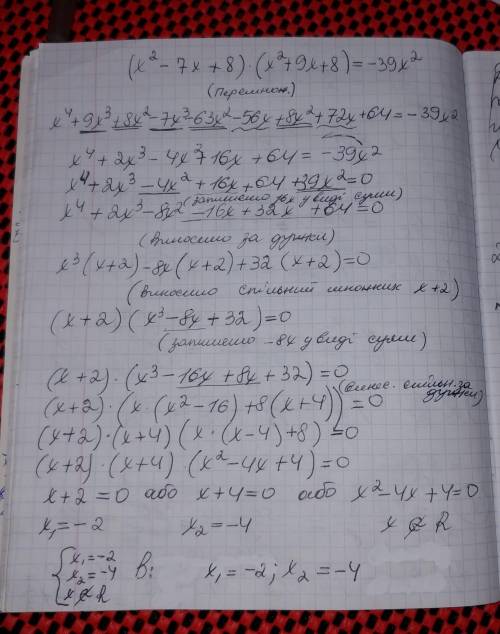 (x² - 7x + 8) · (x² + 9x + 8) = -39x²
(перемнож.)
x⁴ + 9x³ + 8x² - 7x³ - 63x² - 56x + 8x² + 72x + 64 = -39x²
x⁴ + 2x³ - 47x² + 16x + 64 = -39x²
x⁴ + 2x³ - 47x² + 16x + 64 + 39x² = 0
(запишемо 16x у виді суми)
x⁴ + 2x³ - 8x² - 16x + 32x + 64 = 0
(Виносимо за дужки)
x³(x+2) - 8x(x+2) + 32(x+2) = 0
(виносимо спільний множник x+2)
(x+2)(x³ - 8x + 32) = 0
(запишемо -8x у виді суми)
(x+2) · (x³ - 16x + 8x + 32) = 0
(винос. спільн. за дужки)
(x+2) · (x · (x² - 16) + 8(x+4)) = 0
(x+2) · (x+4)(x · (x-4) + 8) = 0
(x+2) · (x+4) · (x² - 4x + 4) = 0
x + 2 = 0 або x + 4 = 0 або x² - 4x + 4 = 0
x₁ = -2 x₂ = -4 x ∉ R
{ x₁ = -2
x₂ = -4 В: x₁ = -2; x₂ = -4
x ∉ R